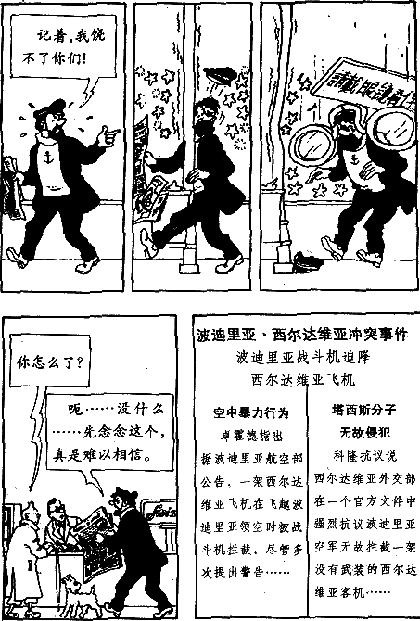 记着，我饶
不了你们！
你怎么了？
呃……没什么
……先念念这个，
真是难以相信。
波迪里亚·西尔达维亚冲突事件
波迪里亚战斗机迫降
西尔达维亚飞机
空中暴力行为
卓霍德指出
据波迪里亚航空部
公告、一架西尔达
维亚飞机在飞越波
迪里亚领空时被战
斗机拦截、尽管多
次提出警告……
塔西斯分子
无故侵犯
科隆抗议说
西尔达维亚外交部
在一个官方文件中
强烈抗议波迪里亚
空军无故拦截一架
没有武装的西尔达
维亚客机……